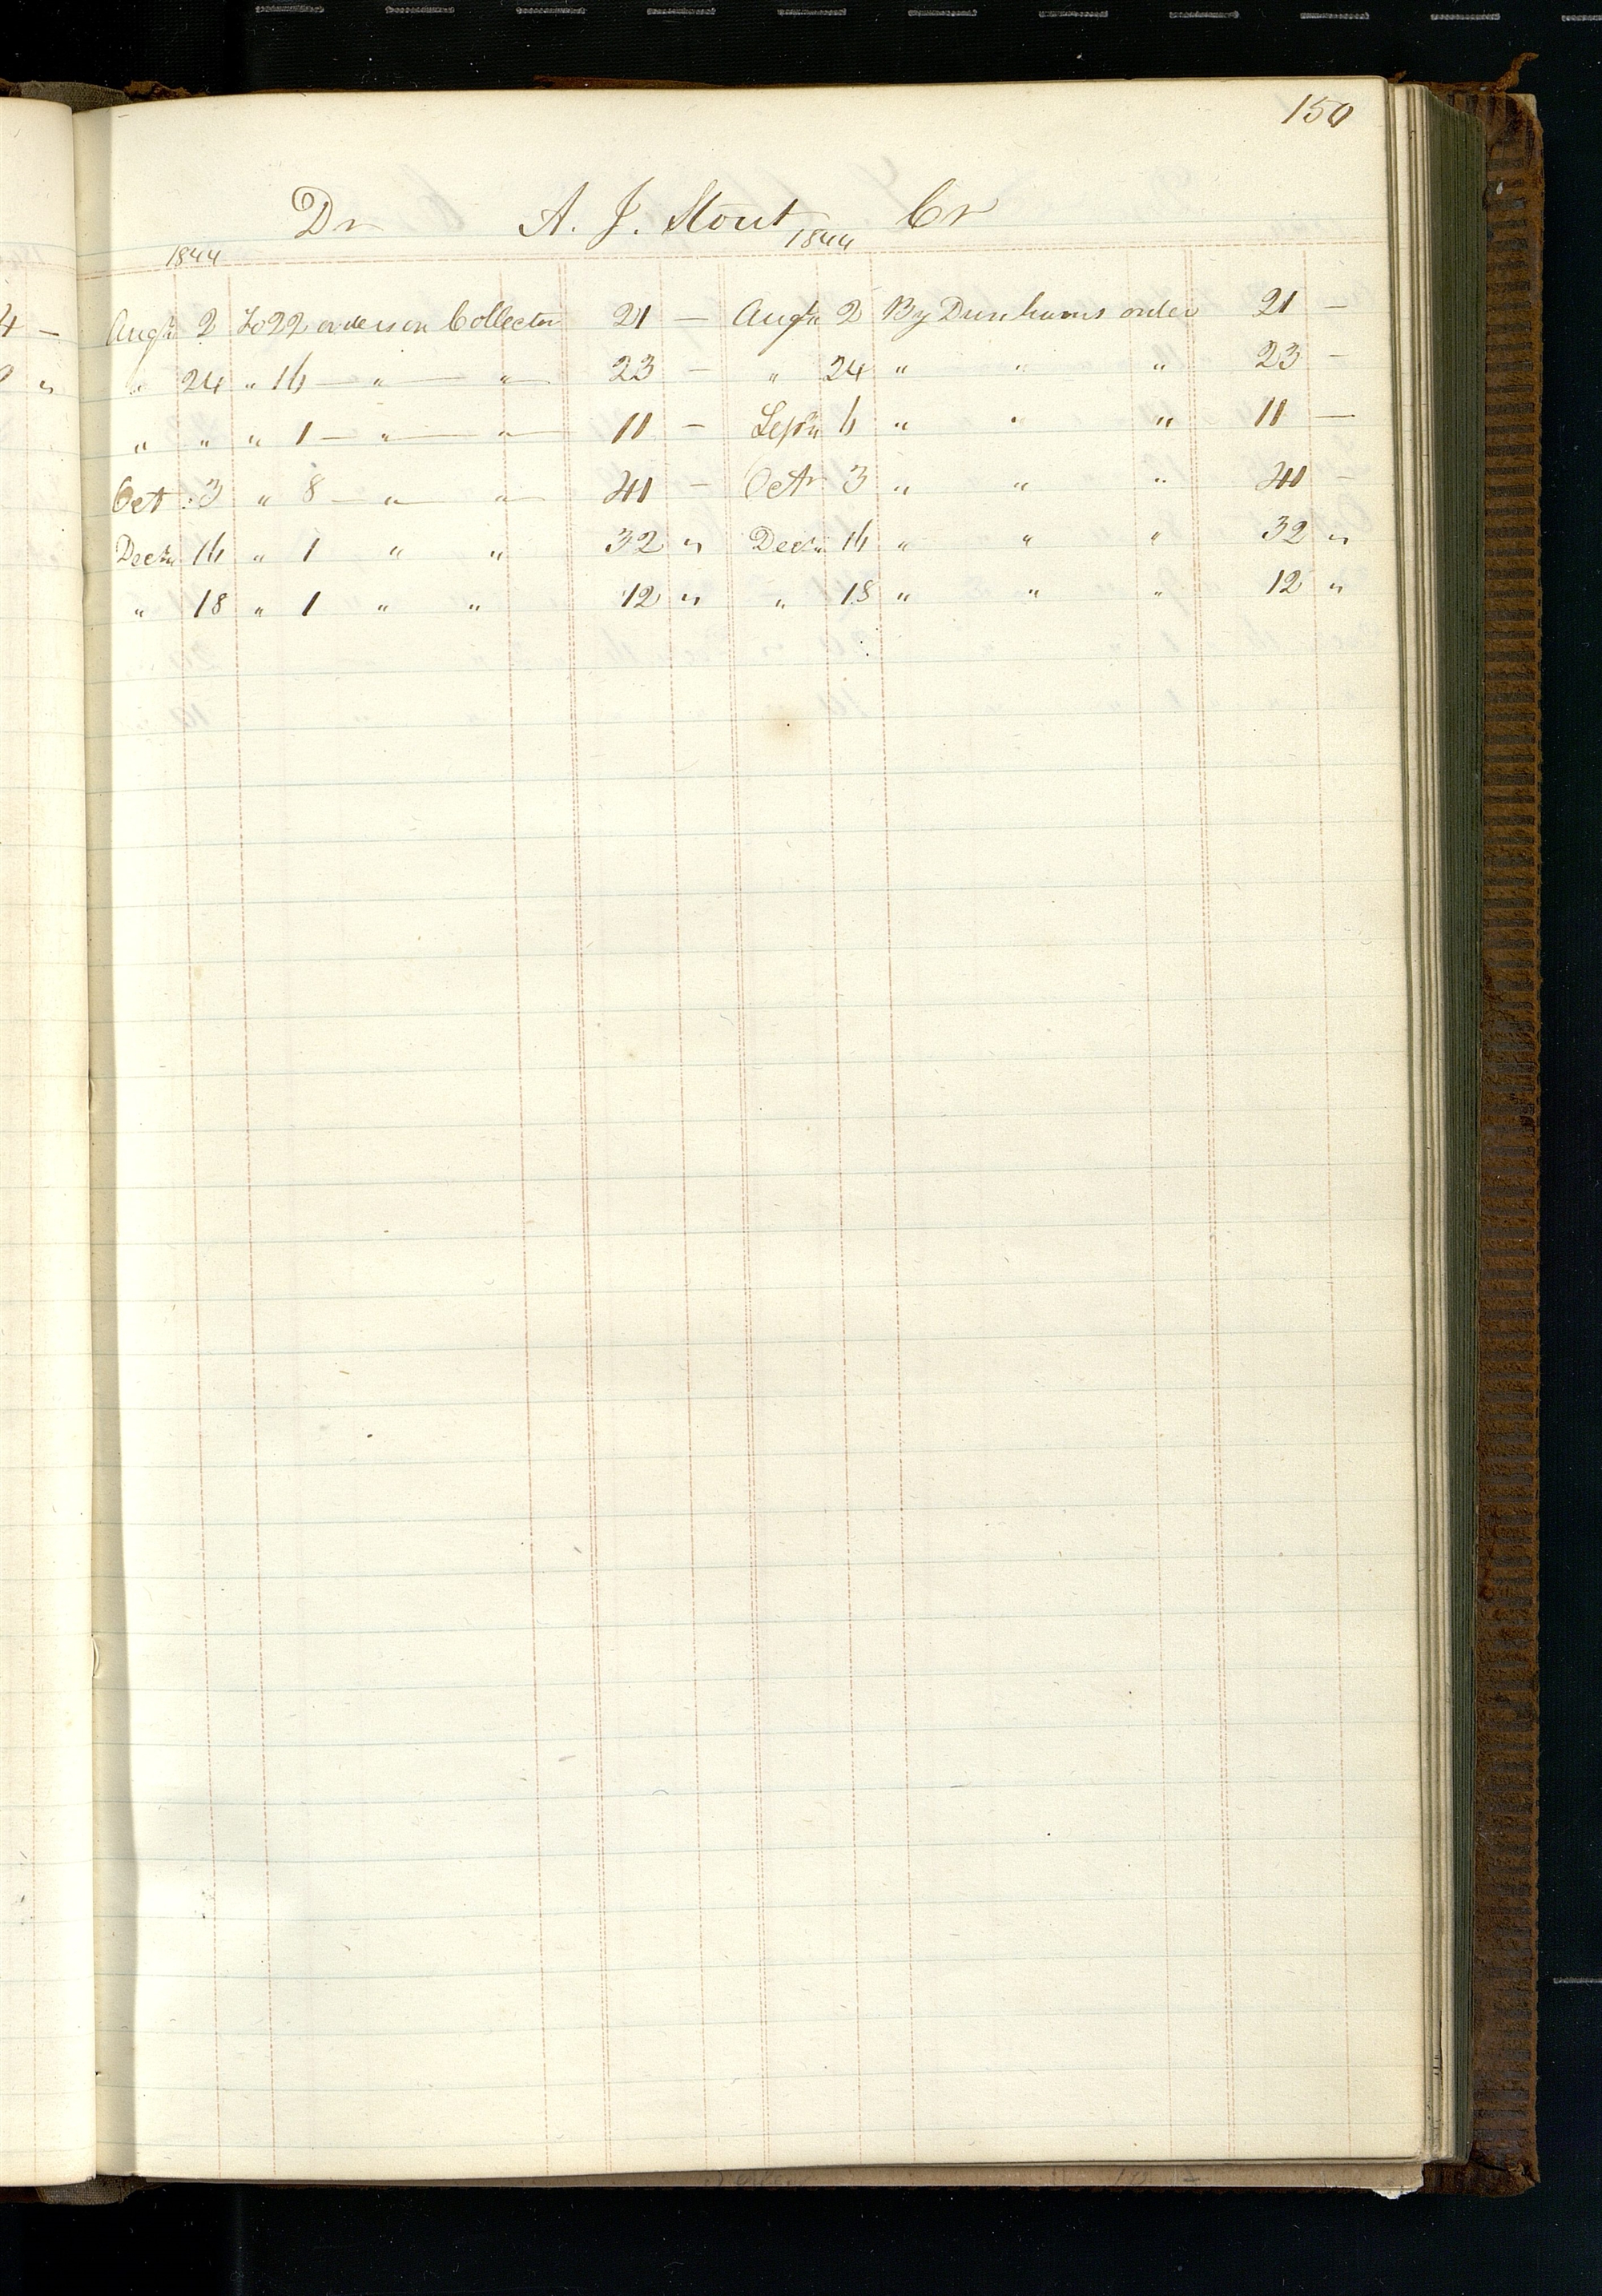 150
Dr A. J. Stout Cr
1844 1844
Augt 2 To 22 orders on Collector 21 — Augt 2 By Dunhams order 21 —
" 24 " 16 — " — " — 23 — " 24 " " " 23 —
" " " 1 — " — " — 11 — Sept 6 " " " 11 —
Oct 3 " 8 — " — " — 41 — Octr 3 " " " 41 —
Decr 16 " 1 " " 32 " Decr 16 " " " 32 "
" 18 " 1 " " 12 " " 18 " " " 12 "